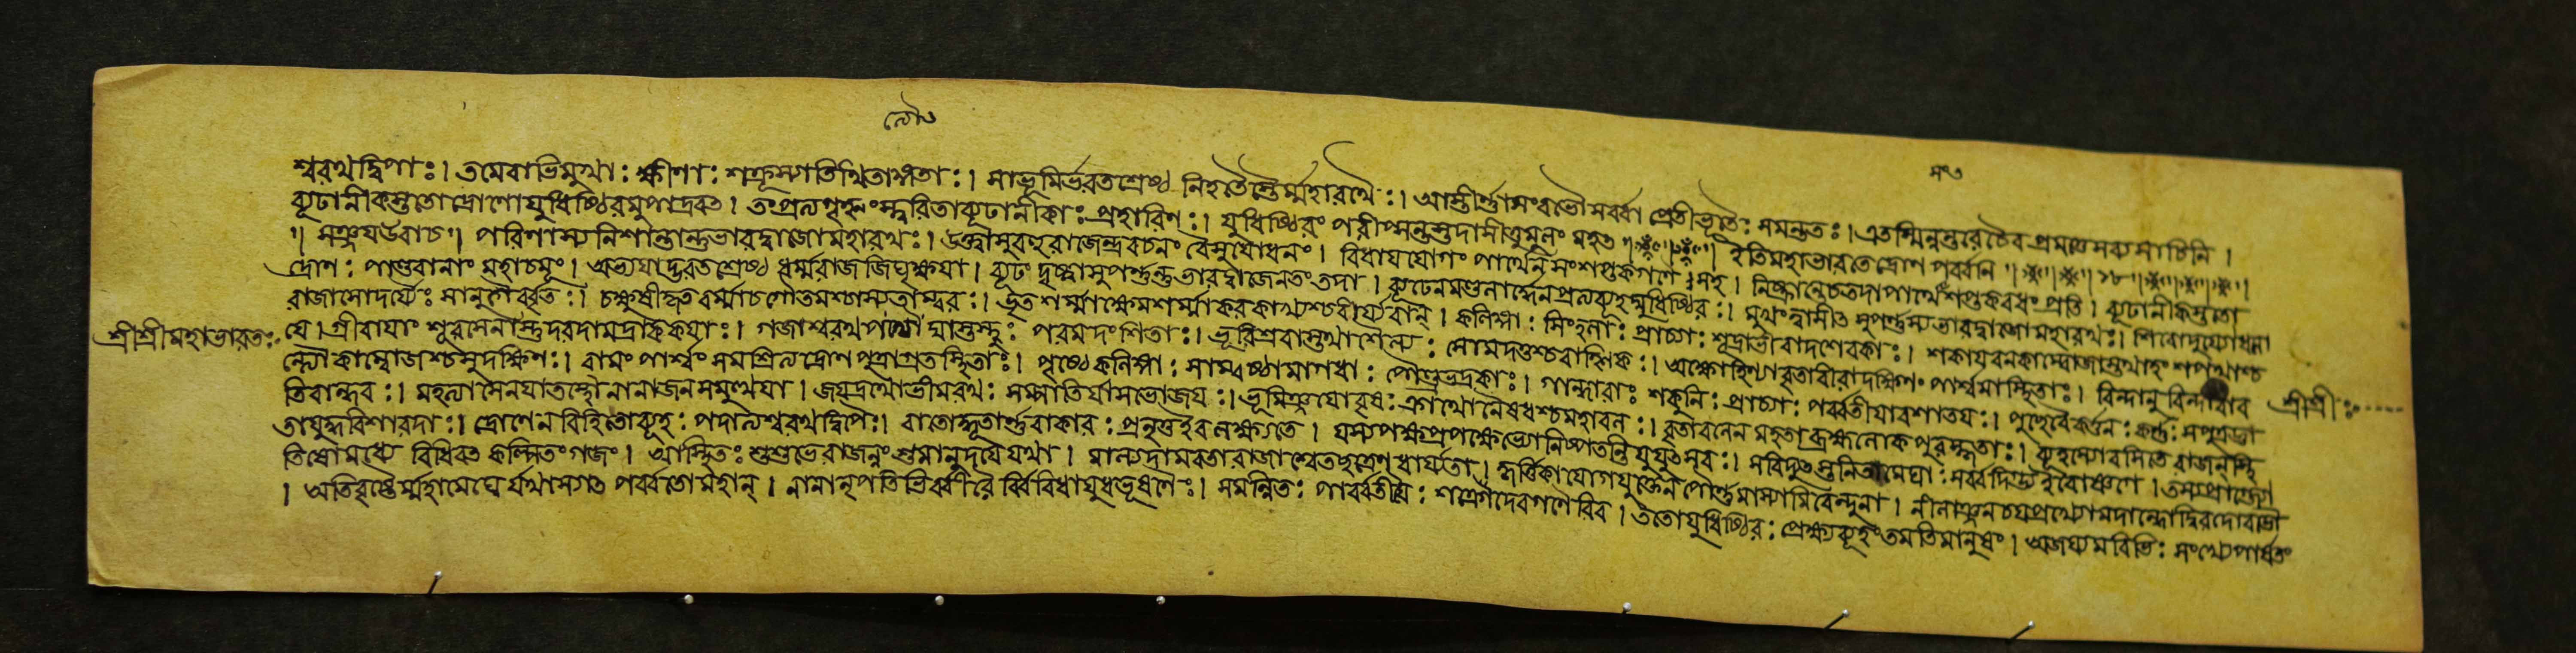 শ্বরথদ্বিপাঃ। তমেবাভিমুখাঃ ক্ষীণাঃ শত্রূস্যাতিথিতাঙ্গতাঃ। সাভূমির্ভরতশ্রেষ্ঠ নিহতৈস্তৈর্ম্মহারথৈঃ। আস্তীর্ণ্ণাসংবভৌসর্ব্বা প্রেতীভূতৈঃ সমন্ততঃ। এতস্মিন্নন্তরেচৈব প্রমত্তেসব্যসাচিনি।
ব্যূঢানীকস্ততোদ্রোণোযুধিষ্ঠিরমুপাদ্রবত। তংপ্রত্যগৃহ্ণংস্ত্বরিতাব্যূঢানীকাঃ প্রহারিণঃ। যুধিষ্ঠিরং পরীপ্সন্তস্তদাসীত্তুমুলং মহত॥ ইতিমহাভারতেদ্রোণ পর্ব্বনি॥ ১৮॥
॥ সঞ্জযউবাচ॥ পরিণাম্যনিশান্তান্তুভারদ্বাজোমহারথঃ। উক্ত্বাসুবহুরাজেন্দ্রবচনং বৈসুযোধনং। বিধাযযোগং পার্থেন সংশপ্তকগণৈঃসহ। নিষ্ক্রান্তেচতদাপার্থেসংশপ্তকবধং প্রতি। ব্যূঢানীকস্ততো
দ্রোণঃ পাণ্ডবানাং মহাচমূং। অভ্যযাদ্ভরতশ্রেষ্ঠ ধর্ম্মরাজজিঘৃক্ষযা। ব্যূঢং দৃষ্ট্বাসুপর্ণ্ণন্তুভারদ্বাজেনতংতদা। ব্যূহেনমণ্ডলার্দ্ধেনপ্রত্যব্যূহদ্যুধিষ্ঠিরঃ। মুখংত্বাসীত সুপর্ণ্ণস্যভারদ্বাজোমহারথঃ। শিরোদুর্য্যোধনো
রাজাসোদর্য্যৈঃ সানুগৈর্ব্বৃতঃ। চক্ষুষীকৃতবর্ম্মাচগৌতমশ্চাস্যতাম্বরঃ। ভূতশর্ম্মাক্ষেমশর্ম্মাকরকাখ্যশ্চবীর্য্যবান্। কলিঙ্গাঃ সিংহলাঃ প্রাচ্যাঃ শূদ্রাভীরাদশেরকাঃ। শকাযবনকাম্বোজাস্তথাহংসপথাশ্চ
শ্রীশ্রীমহাভারতঃ যে। গ্রীবাযাং শূরসেনাস্তুদরদামদ্রকৈকযাঃ। গজাশ্বরথপত্ত্যোঘাস্তস্থুঃ পরমদংশিতাঃ। ভূরিশ্রবাস্তথাশৈল্যঃ সোমদত্তশ্চবাহ্লিকঃ। অক্ষৌহিণ্যাবৃতাবীরাদক্ষিণং পার্শ্বমাস্থিতাঃ। বিন্দানুবিন্দাবাব শ্রীশ্রীঃ
ন্ত্যৌকাম্বোজশ্চসুদক্ষিণঃ। বামং পার্শ্বং সমাশ্রিত্যদ্রোণপুত্রাগ্রতস্থিতাঃ। পৃষ্ঠেকলিঙ্গাঃ সাম্বষ্ঠামাগধাঃ পৌণ্ড্রভদ্রকাঃ। গান্ধারাঃ শকুনিঃ প্রাচ্যাঃ পর্ব্বতীযাবশাতযঃ। পুচ্ছেবৈকর্ত্তনঃ কর্ণ্ণঃ সপুত্রজ্ঞা
তিবান্ধবঃ। মহত্যাসেনযাতস্থৌনানাজনসমুত্থযা। জযদ্রথোভীমরথঃ সম্পাতির্যাসভোজযঃ। ভূমিঞ্জযোবৃষঃ ক্রাথোনৈষধশ্চমহাবলঃ। বৃতাবলেনমহতাব্রহ্মলোকপুরস্কৃতাঃ। ব্যূহস্যোরসিতে রাজনস্থি
তাযুদ্ধবিশারদাঃ। দ্রোণেনবিহিতোব্যূহঃ পদাত্যশ্বরথদ্বিপৈঃ। বাতোদ্ধূতার্ণ্ণবাকারঃ প্রনৃত্তইবলক্ষ্যতে। যস্যপক্ষপ্রপক্ষেভ্যোনিষ্পতন্তিযুযুত্সবঃ। সবিদ্যুতস্তনিতামেঘাঃ সর্ব্বদিগ্ভ্যইবোষ্ণগে। তস্যপ্রাগ্জ্যো
তিষোমধ্যে বিধিবত কল্পিতংগজং। আস্থিতঃ শুশুভেরাজন্নংশুমানুদযেযথা। মাল্যদামবতারাজাশ্বেতছত্রেণধার্য্যতা। কৃর্ত্তিকাযোগযুক্তেন পৌর্ণ্ণমাস্যামিবেন্দুনা। নীলাঞ্জনচযপ্রখ্যোমদান্ধোদ্বিরদোবভৌ
। অতিবৃষ্টৈর্ম্মহামেঘৈর্যথাসগত পর্ব্বতোমহান্। নানানৃপতিভির্ব্বীরৈর্ব্বিবিধাযুধভূষণৈঃ। সমন্বিতঃ পার্ব্বতীযৈঃ শক্রোদেবগণৈরিব। ততোযুধিষ্ঠিরঃ প্রেক্ষ্যব্যূহংতমতিমানুষং। অজয্যমরিভিঃ সংখ্যেপার্ষতং